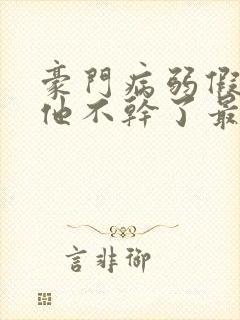 豪門病弱假
他不幹了最
言非御